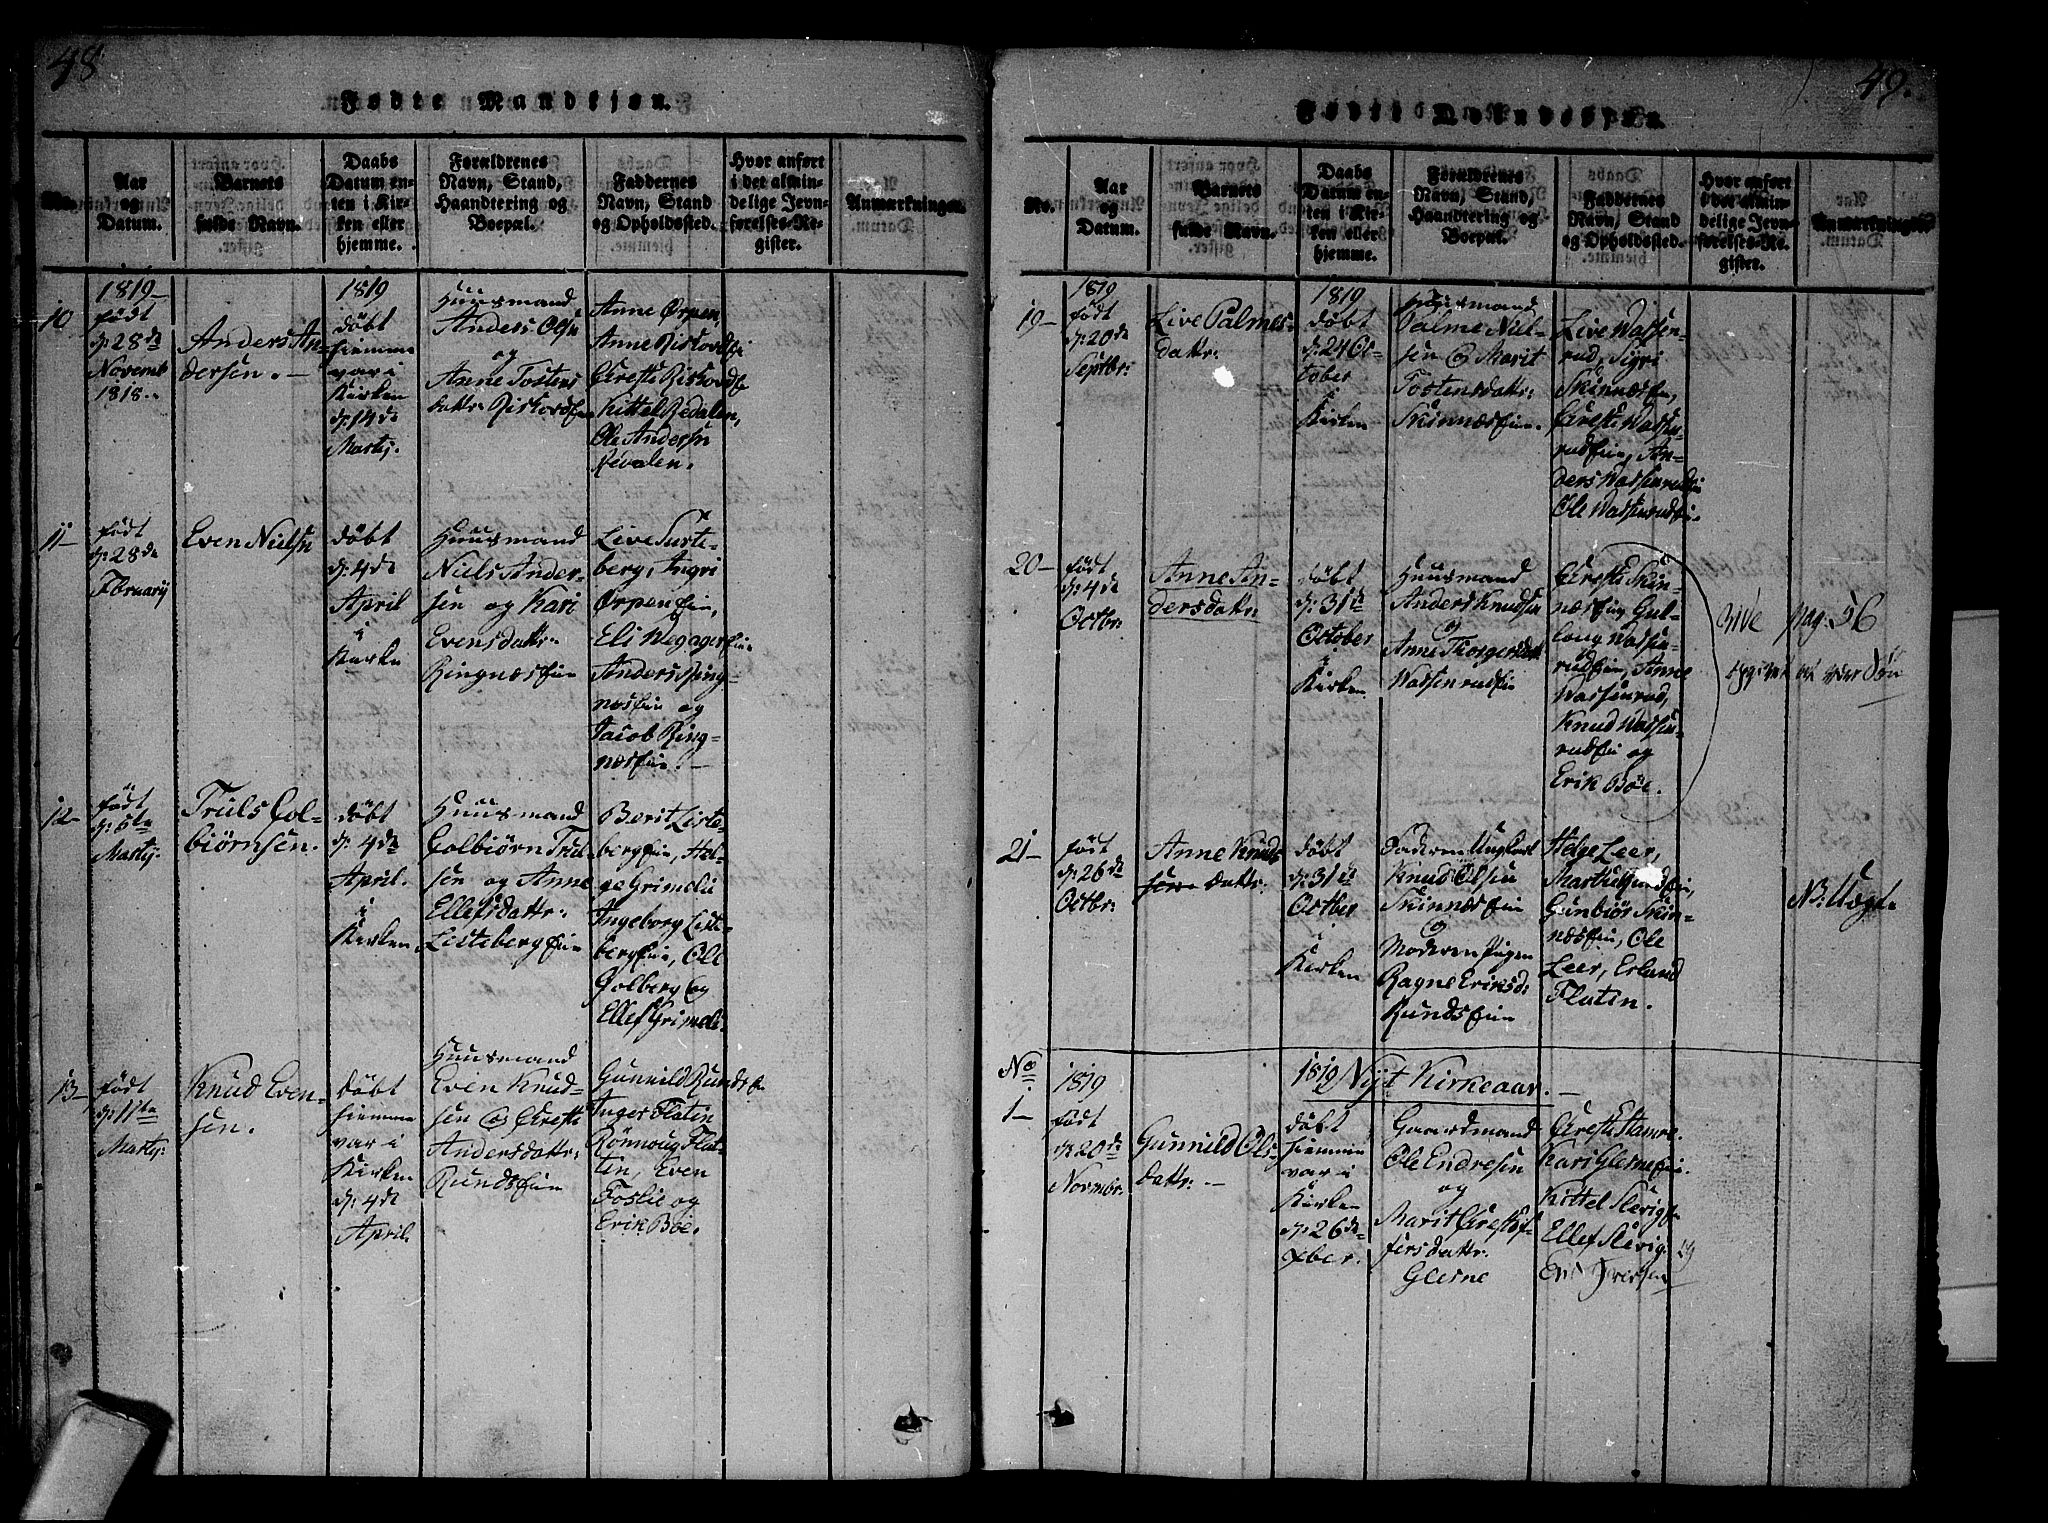 48
Fødte Mandkjøn.
No.
Aar
og
Datum.
Barnets
fulde Navn.
Daabs
Datum en-
ten i Kir-
ken eller
hjemme.
Forældrenes
Navn, Stand,
Haandtering og
Boepæl.
Faddernes
Navn, Stand
og Opholdssted.
Hvor anført
i det almin-
delige Jevn-
førelses-Re-
gister.
Anmærkninger.
10
1819
født
d: 28de
Novemb
1818.
Anders An-
dersen.
1819
döbt
hiemme
var i
Kirken
d: 14de
Martij.
Huusmand
Anders Olsn
og
Anne Tostens
dattr:
Anne Ørpen,
Kittel Redalen,
Ole Andersn
11
født
d: 28de
Februarij
Even Nielsn
döbt
d: 4de
April
i
Kirken
Huusmand
Niels Ander-
sen og Kari
Evensdattr:
Ringnæseiie
Live Surte-
berg, Ingri
Ørpeneiie,
Eli
Anders Ring-
næseiie og
Jacob Ring-
næseiie.
12
født
d: 6te
Martij.
Truls Gol-
biörnsen.
döbt
d: 4de
April.
i
Kirken
Huusmand
Golbiörn Trul-
sen og Anne
Ellefsdattr:
Listebergeiie
Berit Liste-
bergeiie, Hel-
ge Grimelie
Ingeborg Liste-
bergeiie, Ole
Golberg og
Ellef Grimeli.
13
født
d: 11te
Martij:
Knud Even-
sen.
döbt
hiemme
var i
Kirken
d: 4de
April.
Huusmand
Even Knud-
sen og Greste
Andersdattr:
Rundseiie
Gunnild Rundsei
Inger Flatin
Rönnoug Fla-
tin, Even
Foslie og
Erik Böe.
49.
Fødte Qvindekjøn.
No.
Aar
og
Datum.
Barnets
fulde Navn.
Daabs
Datum en-
ten i Kir-
ken eller
hjemme.
Forældrenes
Navn, Stand,
Haandtering og
Boepæl.
Faddernes
Navn, Stand
og Opholdssted.
Hvor anført
i det almin-
delige Jevn-
førelses-Re-
gister.
Anmærkninger.
19
1819
født
d: 20de
Septbr:
Live Palmes-
dattr:
1819
döbt
d: 24 Oc-
tober
i
Kirken
Huusmand
Palme Niel-
sen og Marit
Tostensdattr:
Skinnæseiie.
Live Wassen-
rud, Sigri
Skinnæseiie,
Greste Wassen-
rudeiie, An-
ders Wassenrudei
Ole Wassenrudei.
20
født
d: 4de
Octbr:
Anne An-
dersdattr:
döbt
d: 31te
October
i
Kirken
Huusmand
Anders Knudsen
og
Anne Thorgersdatt
Wassenrudeiie
Greste Skin-
næseiie, Gul-
loug Wassen-
rudeiie, Anne
Wassenrud,
Knud Wassen-
rudeiie og
Erik Böe.
vide pag: 56
21
født
d: 26de
Octbr:
Anne Knuds
dattr:
döbt
d: 31te
Octber
i
Kirken
Faderen Ungkarl
Knud Olsen
Skinnæseiie
og
Moderen Pigen
Ragne Eriksd:
Rundseiie
Helge Leer,
Gunbiör Skin-
næseiie, Ole
Leer, Erland
Flatin.
NB: Uægte
No
1819
1819 Nyt Kirkeaar.
1
født
d: 20de
Novmbr:
Gunnild Ols-
dattr:
döbt
hiemme
var i
Kirken
d: 26de
Xber.
Gaardmand
Ole Endresen
og
Marit Gresto-
fersdattr:
Glesne
Greste Hamre.
Kari Glesneeie.
Kittel Slevige
Ellef Slevig. og
Iversen